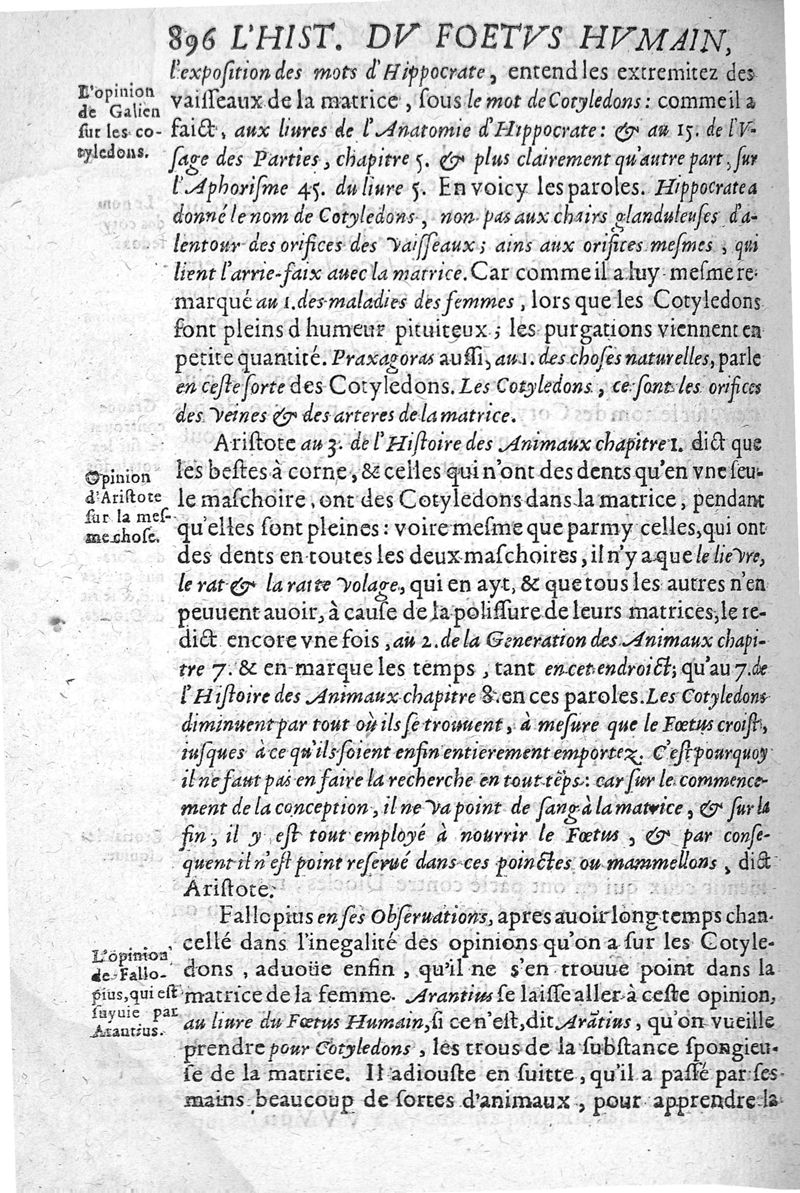 896 L'HIST. DV FOETVS HVMAIN,
l'exposition des mots d'Hippocrate, entend les extremitez des
L'opinion
de Galien
sur les co-
tyledons.
vaisseaux de la matrice, sous le mot de Cotyledons: comme il a
faict, aux liures de l'Anatomie d'Hippocrate: & au 15. de l'V-
sage des Parties, chapitre 5. & plus clairement qu'autre part, sur
l'Aphorisme 45. du liure 5. En voicy les paroles. Hippocrate a
donné le nom de Cotyledons, non pas aux chairs glanduleuses d'a-
lentour des orifices des vaisseaux; ains aux orifices mesmes, qui
lient l'arrie-faix auec la matrice. Car comme il a luy mesme re-
marqué au 1. des maladies des femmes, lors que les Cotyledons
sont pleins d humeur pituiteux; les purgations viennent en
petite quantité. Praxagoras aussi, au 1. des choses naturelles, parle
en ceste sorte des Cotyledons. Les Cotyledons, ce sont les orifices
des veines & des arteres de la matrice.
Aristote au 3. de l'Histoire des Animaux chapitre 1. dict que
Opinion
d'Aristote
sur la mes-
me chose.
les bestes à corne, & celles qui n'ont des dents qu'en vne seu-
le maschoire, ont des Cotyledons dans la matrice, pendant
qu'elles sont pleines: voire mesme que parmy celles, qui ont
des dents en toutes les deux maschoires, il n'y a que le lievre,
le rat & la ratte volage, qui en ayt, & que tous les autres n'en
peuuent auoir, à cause de la polissure de leurs matrices, le re-
dict encore vne fois, au 2. de la Generation des Animaux chapi-
tre 7. & en marque les temps, tant en cet endroict; qu'au 7. de
l'Histoire des Animaux chapitre 8. en ces paroles. Les Cotyledons
diminuent par tout où ils se trouuent, à mesure que le Fœtus croist,
iusques à ce qu'ils soient enfin entierement emportez. C'est pourquoy
il ne faut pas en faire la recherche en tout tẽps: car sur le commence-
ment de la conception, il ne va point de sang à la matrice, & sur la
fin, il y est tout employé à nourrir le Fœtus, & par conse-
quent il n'est point reserué dans ces poinctes ou mammellons, dict
Aristote.
Fallopius en ses Obseruations, apres auoir long temps chan-
L'opinion
de Fallo-
pius, qui est
suyuie par
Arantius.
cellé dans l'inegalité des opinions qu'on a sur les Cotyle-
dons, aduoüe enfin, qu'il ne s'en trouue point dans la
matrice de la femme. Arantius se laisse aller à ceste opinion,
au liure du Fœtus Humain, si ce n'est, dit Arãtius, qu'on vueille
prendre pour Cotyledons, les trous de la substance spongieu-
se de la matrice. Il adiouste en suitte, qu'il a passé par ses
mains beaucoup de sortes d'animaux, pour apprendre la